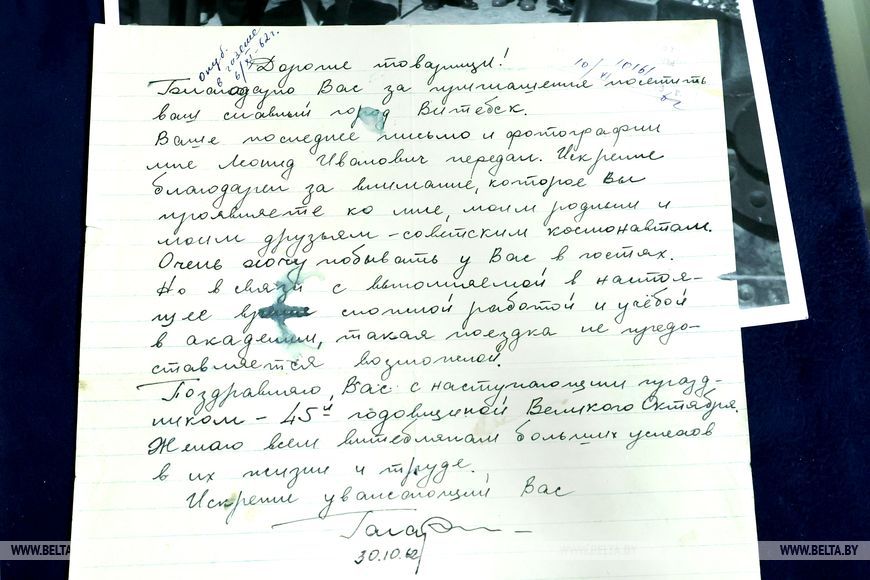 опуб.
в газете
6/XI-62г.
Дорогие товарищи!
Благодарю Вас за приглашение посетить
ваш славный город Витебск.
Ваше последнее письмо и фотографии
мне Леонид Иванович передал. Искренне
благодарен за внимание, которое Вы
проявляете ко мне, моим родным и
моим друзьям - советским космонавтам.
Очень хочу побывать у Вас в гостях.
Но в связи с выполняемой в настоя-
щее время сложной работой и учёбой
в академии, такая поездка не предо-
ставляется возможной.
Поздравляю Вас с наступающим празд-
ником - 45й годовщиной Великого Октября.
Желаю всем витеблянам больших успехов
в их жизни и труде.
Искренне уважающий Вас
Гагарин
30.10.62
WWW.BELTA.BY
WWW.BELTA.BY
WWW.BELTA.BY